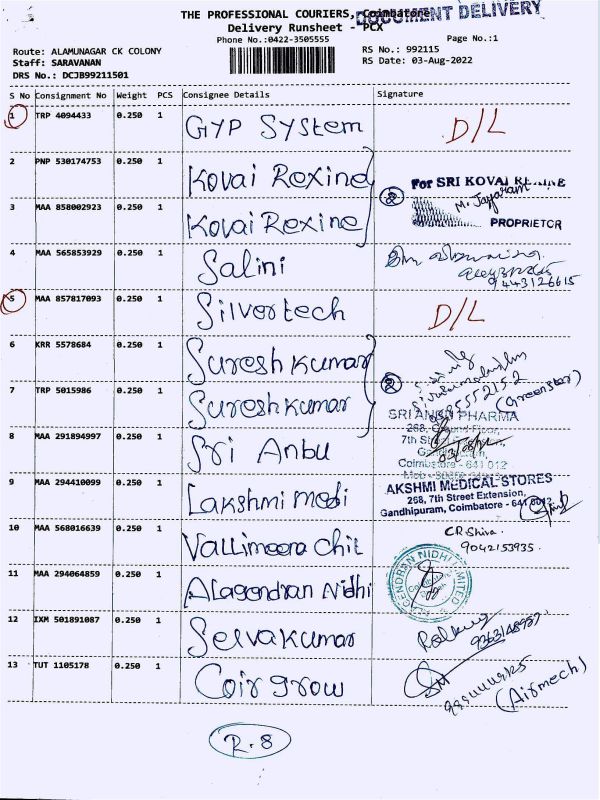 THE PROFESSIONAL COURIERS, Coimbatore
DOCUMENT DELIVERY
Delivery Runsheet - PCX
Phone No.:0422-3505555 Page No.:1
Route: ALAMUNAGAR CK COLONY RS No.: 992115
Staff: SARAVANAN RS Date: 03-Aug-2022
DRS No.: DCJB99211501
S No Consignment No Weight PCS Consignee Details Signature
1 TRP 4094433 0.250 1 GYP System D/L
2 PNP 530174753 0.250 1 Kovai Rexine 2 For SRI KOVAI REXINE
M. Jayaram
3 MAA 858002923 0.250 1 Kovai Rexine PROPRIETOR
4 MAA 565853929 0.250 1 Salini
9443126615
5 MAA 857817093 0.250 1 Silvertech D/L
6 KRR 5578684 0.250 1 Suresh kumar 2
(Greenstar)
7 TRP 5015986 0.250 1 Suresh kumar
SRI ANBU PHARMA
268, Ground Floor,
8 MAA 291894997 0.250 1 Sri Anbu 7th
Coimbatore - 641 012
9 MAA 294410099 0.250 1 Lakshmi medi AKSHMI MEDICAL STORES
268, 7th Street Extension,
Gandhipuram, Coimbatore - 641 0012
10 MAA 568016639 0.250 1 Vallimeera Chit CR Shiva.
9042153935.
11 MAA 294064859 0.250 1 Alagendran Nidhi GENDRAN NIDHI LIMITED
12 IXM 501891087 0.250 1 Selvakumar
13 TUT 1105178 0.250 1 Coir grow (Airmech)
R.8